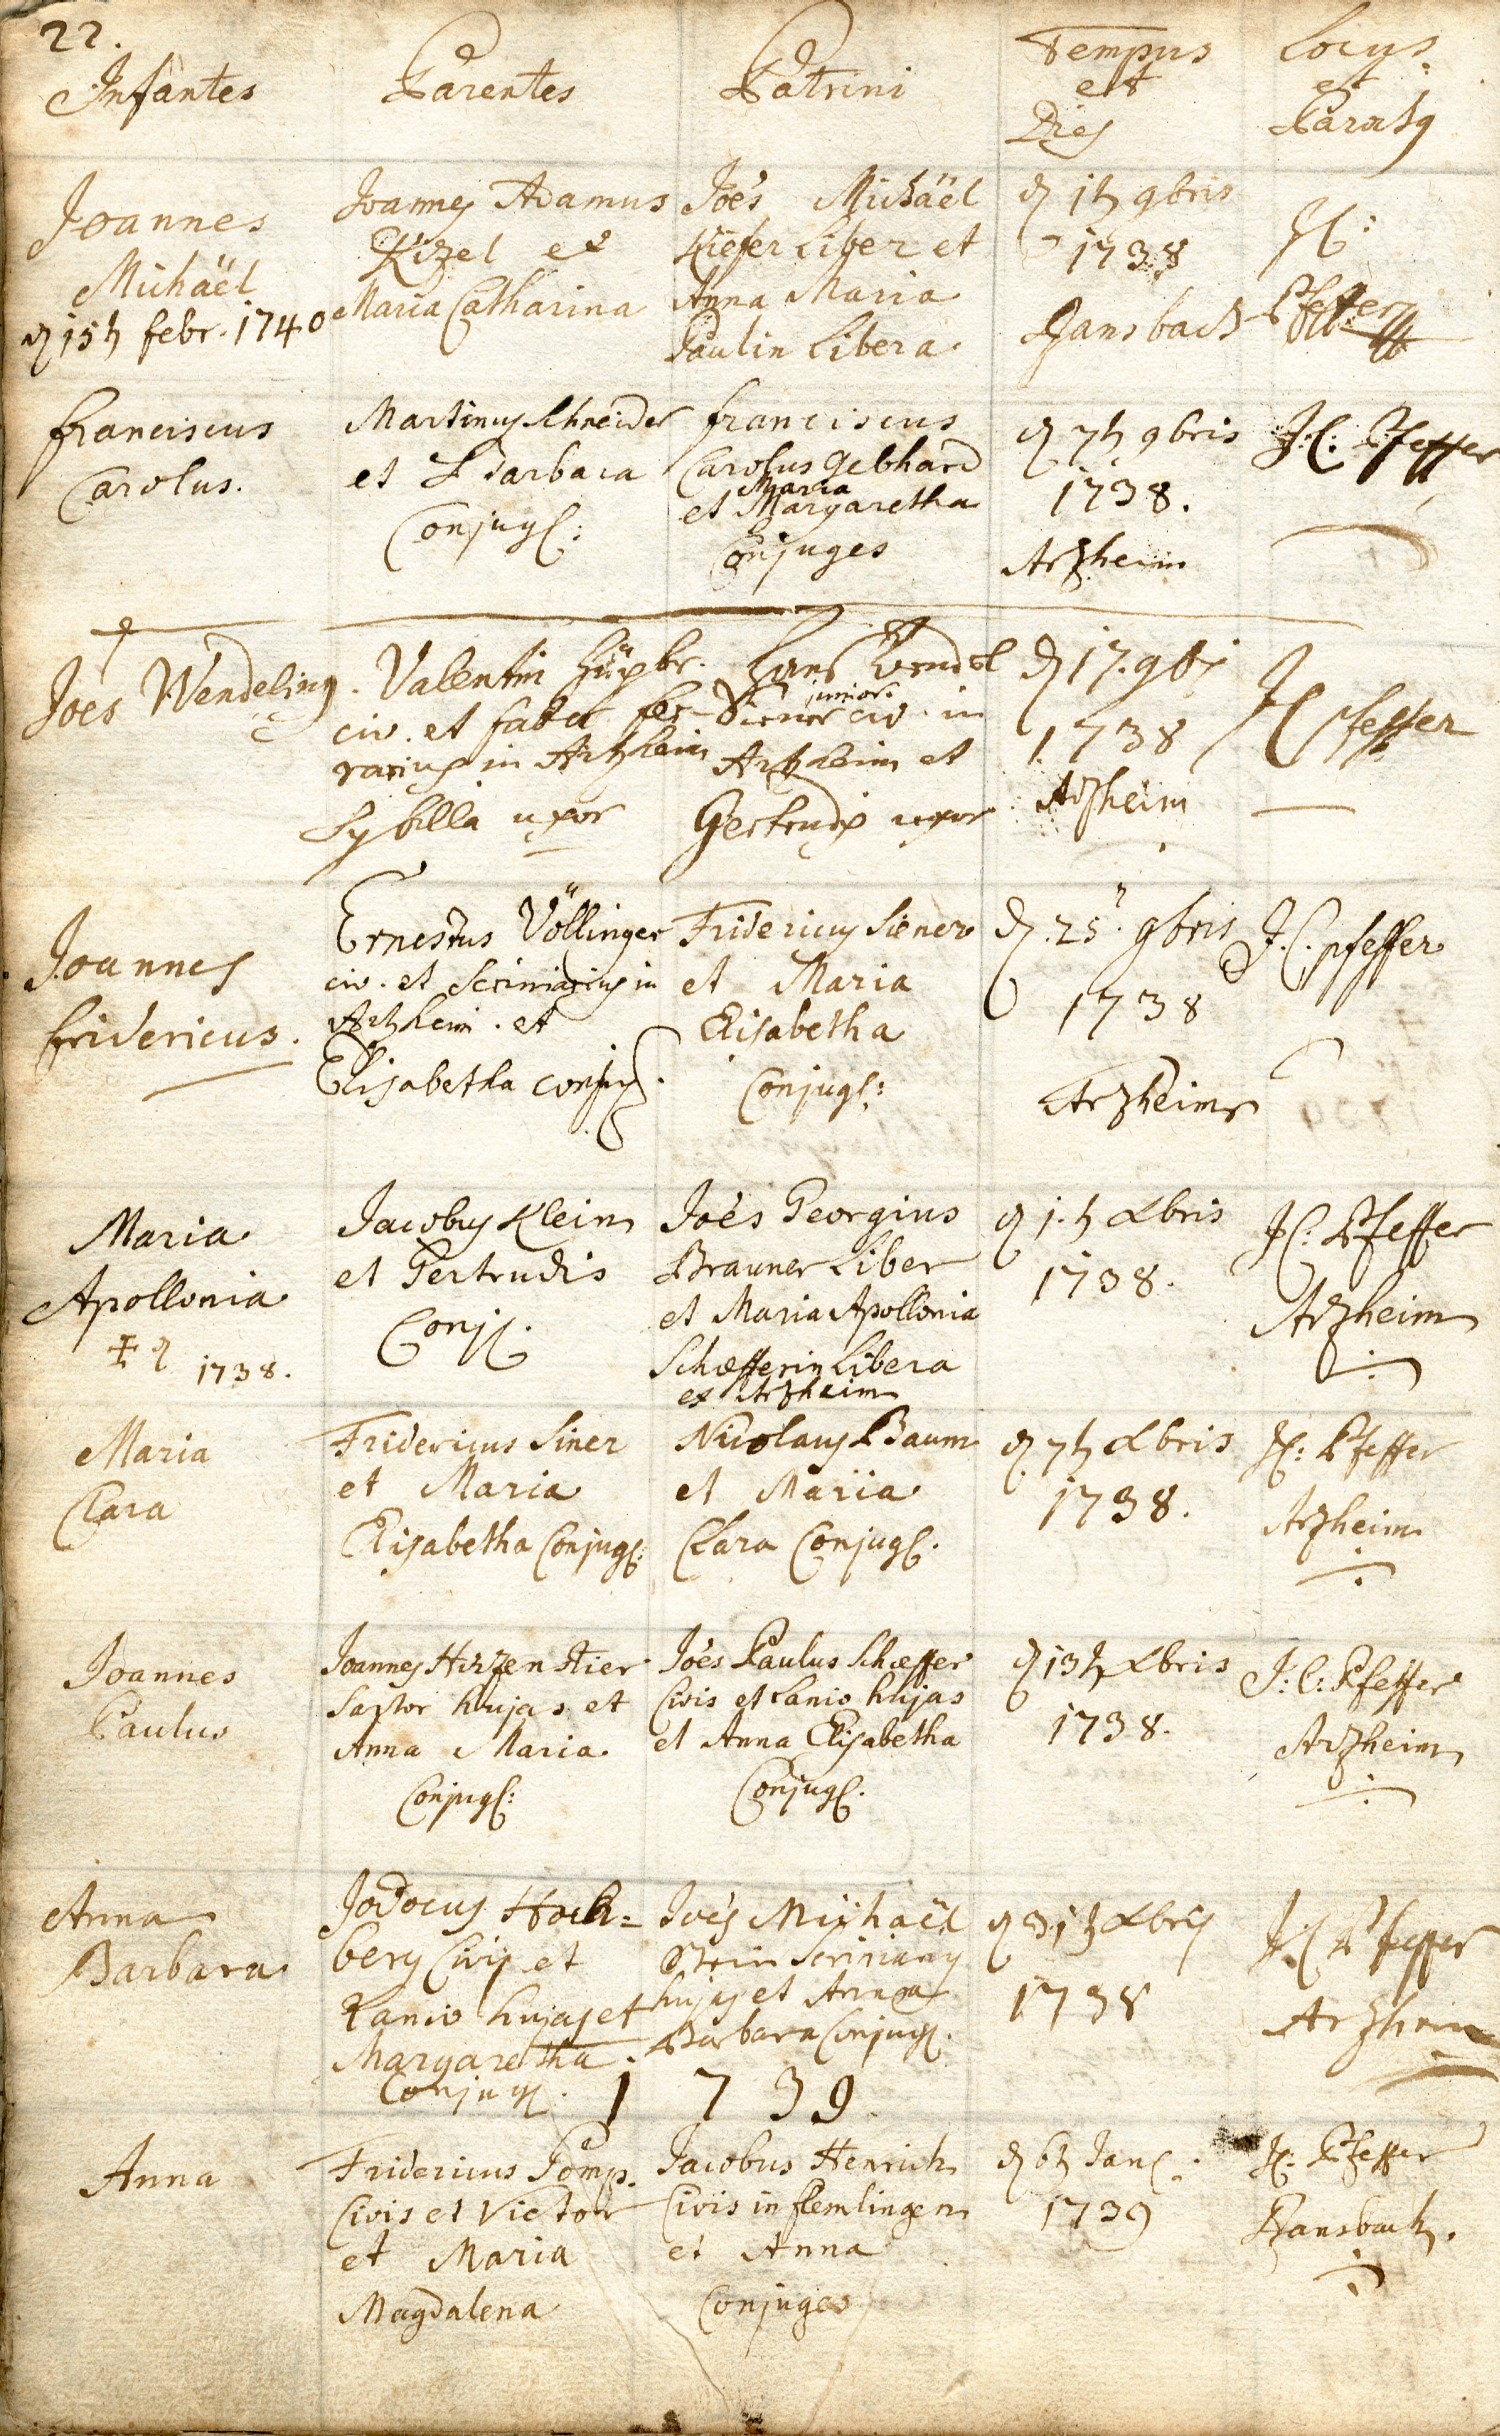 22.
Infantes Parentes Patrini Tempus et Dies Locus et Paroch9
Joannes
Michaël
15 febr. 1740
Joannes Adamus
Kizel et
Maria Catharina
Joës Michaël
Kiefer Liber et
Anna Maria
Paulin Libera
d 1 9bris
1738
Ransbach
JC:
Pfeffer
franciscus
Carolus.
Martinus Schneider
et Barbara
Conjug:
franciscus
Carolus Gebhard
Maria
et Margaretha
Conjuges
d 7 9bris
1738.
Arzheim
J.C. Pfeffer
Joës Wendelin9.
Valentin
civ. et faber fer-
rarius in Artzheim
Sybilla uxor
Hans Wendel
junior
Siener civ. in
Artzheim et
Gertrudis uxor
d 17. 9b
1738
Arzheim
JC pfeffer
Joannes
fridericus.
Ernestus Völlinger
civ. et Scriniarius in
Artzheim. et
Elisabetha conjug.
Fridericus Siener
et Maria
Elisabetha
Conjug:
d. 25. 9bris
1738
Arzheim
J.C. pfeffer
Maria
Apollonia
‡ 1738.
Jacobus Klein
et Gertrudis
Conj.
Joës Georgius
Brauner Liber
et Maria Apollonia
Schæfferin Libera
ex Arzheim
d 1. Xbris
1738.
JC: Pfeffer
Arzheim
Maria
Clara
Fridericus Siner
et Maria
Elisabetha Conjug:
Nicolaus Baum
et Maria
Clara Conjug.
d 7 Xbris
1738.
JC: Pfeffer
Arzheim
Joannes
Paulus
Joannes Hirzenstier
Sartor hujas et
Anna Maria
Conjug:
Joës Paulus Schæffer
Civis et Lanio hujas
et Anna Elisabetha
Conjug.
d 13 Xbris
1738.
J: C: Pfeffer
Arzheim
Anna
Barbara
Jodocus Hoch=
berg Civis et
Lanio hujas et
Margaretha.
Conjug.
Joës Michaël
Stein Scriniarius
hujas et Anna
Barbara Conjug.
d 31 Xbris
1738
J.C. Pfeffer
Arzheim
1739.
Anna
Fridericus Pomp.
Civis et Vietor
et Maria
Magdalena
Jacobus Henrich
Civis in flemlingen
et Anna
Conjuges
d 6 Jan.
1739
JC: Pfeffer
Ransbach.